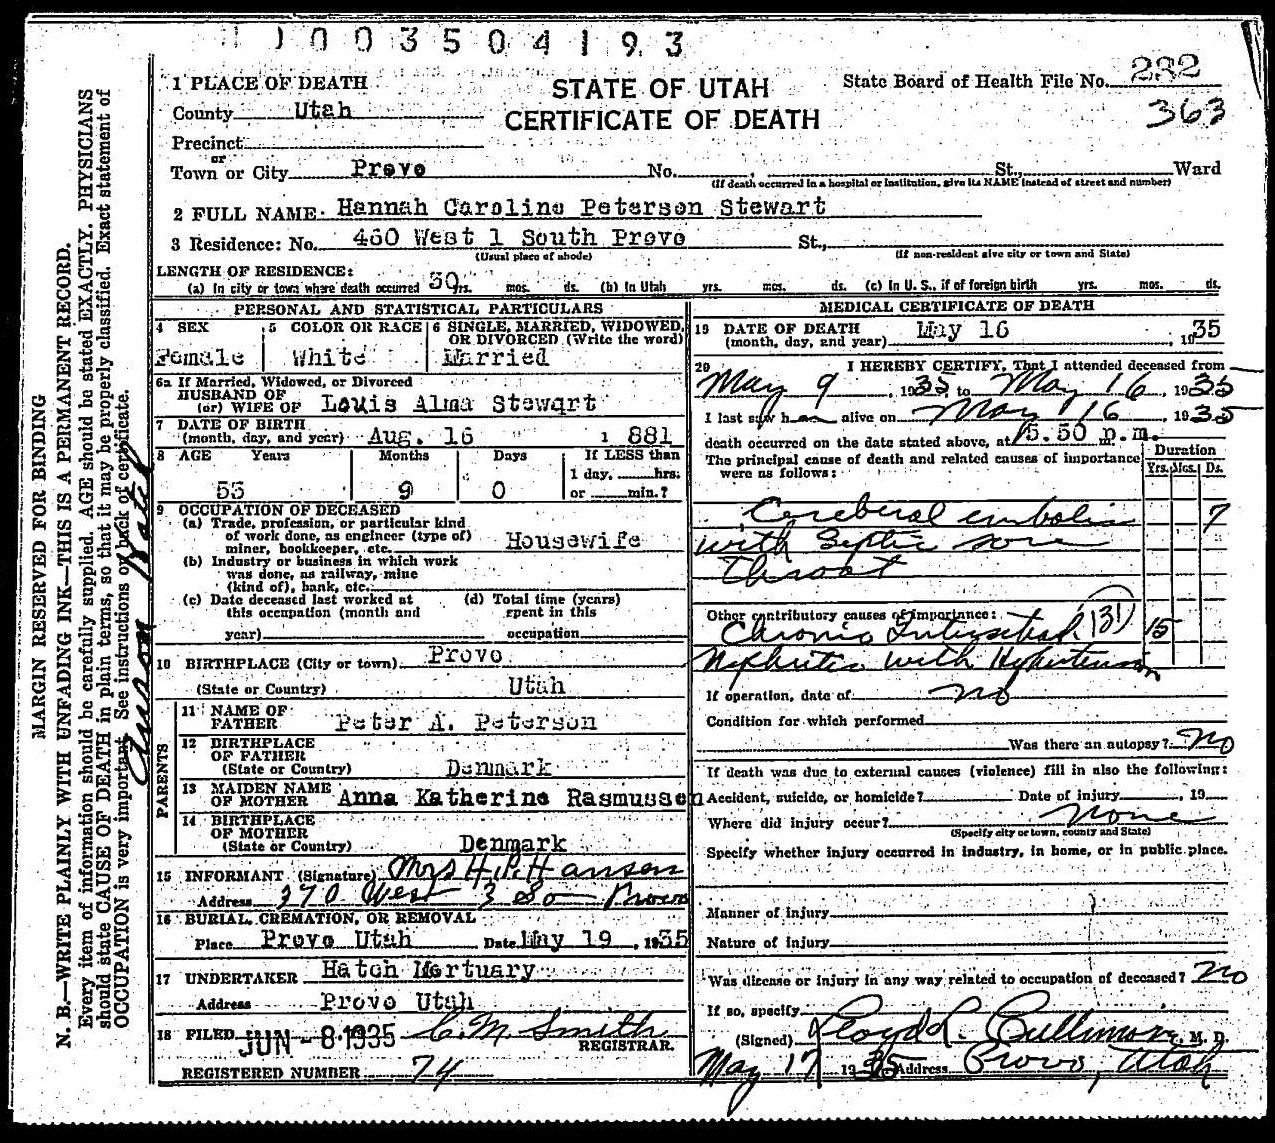 1003504193
1 PLACE OF DEATH
STATE OF UTAH
CERTIFICATE OF DEATH
State Board of Health File No. 282
363
County Utah
Precinct
or
Town or City Provo No. , St., Ward
(If death occurred in a hospital or institution, give its NAME instead of street and number)
2 FULL NAME Hannah Caroline Peterson Stewart
3 Residence: No. 460 West 1 South Provo St.,
(Usual place of abode) (If non-resident give city or town and State)
LENGTH OF RESIDENCE:
(a) In city or town where death occurred 30 yrs. mos. ds. (b) In Utah yrs. mos. ds. (c) In U. S., if of foreign birth yrs. mos. ds.
PERSONAL AND STATISTICAL PARTICULARS
4 SEX Female
5 COLOR OR RACE White
6 SINGLE, MARRIED, WIDOWED,
OR DIVORCED (Write the word)
Married
6a If Married, Widowed, or Divorced
HUSBAND OF
(or) WIFE OF Louis Alma Stewart
7 DATE OF BIRTH
(month, day, and year) Aug. 16 1881
8 AGE Years Months Days If LESS than
1 day, hrs.
or min.?
53 9 0
9 OCCUPATION OF DECEASED
(a) Trade, profession, or particular kind
of work done, as engineer (type of)
miner, bookkeeper, etc. Housewife
(b) Industry or business in which work
was done, as railway, mine
(kind of), bank, etc.
(c) Date deceased last worked at
this occupation (month and
year)
(d) Total time (years)
spent in this
occupation
10 BIRTHPLACE (City or town) Provo
(State or Country) Utah
PARENTS
11 NAME OF
FATHER Peter A. Peterson
12 BIRTHPLACE
OF FATHER
(State or Country) Denmark
13 MAIDEN NAME
OF MOTHER Anna Katherine Rasmussen
14 BIRTHPLACE
OF MOTHER
(State or Country) Denmark
15 INFORMANT (Signature) Mrs H. P. Hansen
Address 270 West 3 So Provo
16 BURIAL, CREMATION, OR REMOVAL
Place Provo Utah Date May 19, 1935
17 UNDERTAKER Hatch Mortuary
Address Provo Utah
18 FILED JUN -8 1935 C. M. Smith
REGISTRAR.
REGISTERED NUMBER 74
MEDICAL CERTIFICATE OF DEATH
19 DATE OF DEATH
(month, day, and year) May 16, 1935
20 I HEREBY CERTIFY, That I attended deceased from
May 9, 1935, to May 16, 1935
I last saw her alive on May 16 1935
death occurred on the date stated above, at 5.50 p.m.
The principal cause of death and related causes of importance
were as follows:
Duration
Yrs. Mos. Ds.
Cerebral embolis 7
with Septic sore
throat
Other contributory causes of importance: (131)
Chronic Interstitial 15
Nephritis with Hypertension
If operation, date of no
Condition for which performed
Was there an autopsy? No
If death was due to external causes (violence) fill in also the following:
Accident, suicide, or homicide? Date of injury , 19
Where did injury occur? none
(Specify city or town, county and State)
Specify whether injury occurred in industry, in home, or in public place.
Manner of injury
Nature of injury
Was disease or injury in any way related to occupation of deceased? No
If so, specify
(Signed) Lloyd L. Cullimore, M. D.
May 17 1935 Address Provo, Utah
MARGIN RESERVED FOR BINDING
N. B.—WRITE PLAINLY WITH UNFADING INK—THIS IS A PERMANENT RECORD.
Every item of information should be carefully supplied. AGE should be stated EXACTLY. PHYSICIANS
should state CAUSE OF DEATH in plain terms, so that it may be properly classified. Exact statement of
OCCUPATION is very important. See instructions on back of certificate.